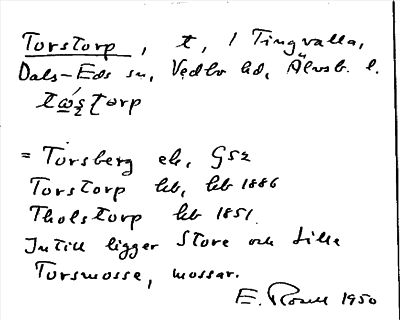 Torstorp, t, / Tingvalla,
Dals-Eds sn, Vedbo hd, Älvsb. l.
= Torsberg ek, G52
Torstorp hb, hb 1886
Tholstorp hb 1851.
Intill ligger Store och Lille
Torsmosse, mossar.
E. Rosell 1950